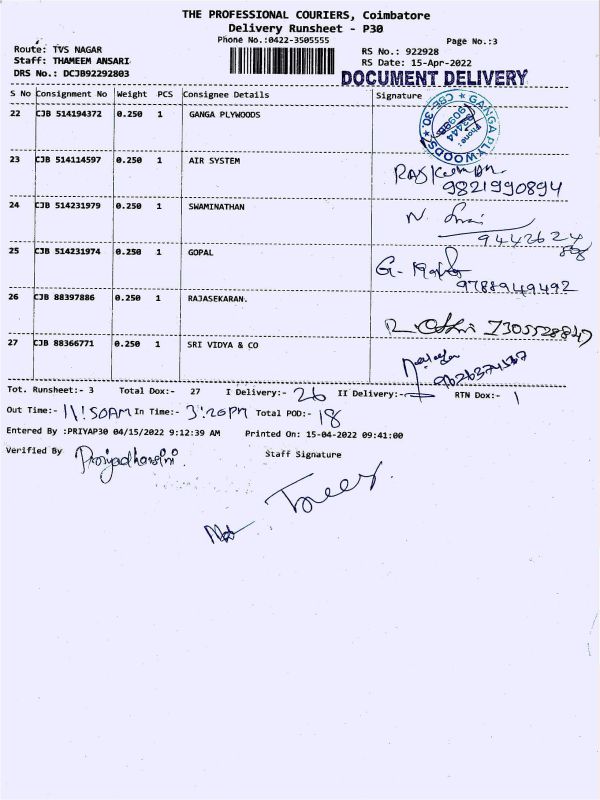 THE PROFESSIONAL COURIERS, Coimbatore
Delivery Runsheet - P30
Phone No.:0422-3505555
Page No.:3
Route: TVS NAGAR
RS No.: 922928
Staff: THAMEEM ANSARI
RS Date: 15-Apr-2022
DRS No.: DCJB92292803
DOCUMENT DELIVERY
S No Consignment No Weight PCS Consignee Details Signature
22 CJB 514194372 0.250 1 GANGA PLYWOODS
GANGA PLYWOODS ★ CBE-30. ★
Phone:
23 CJB 514114597 0.250 1 AIR SYSTEM
9821990894
24 CJB 514231979 0.250 1 SWAMINATHAN
N.
9442624
25 CJB 514231974 0.250 1 GOPAL
G.
9788949492
26 CJB 88397886 0.250 1 RAJASEKARAN.
R
7305528847
27 CJB 88366771 0.250 1 SRI VIDYA & CO
Tot. Runsheet:- 3 Total Dox:- 27 I Delivery:- 26 II Delivery:- RTN Dox:- 1
Out Time:- 11:50AM In Time:- 3:20PM Total POD:- 18
Entered By :PRIYAP30 04/15/2022 9:12:39 AM Printed On: 15-04-2022 09:41:00
Verified By Priyadharsini Staff Signature